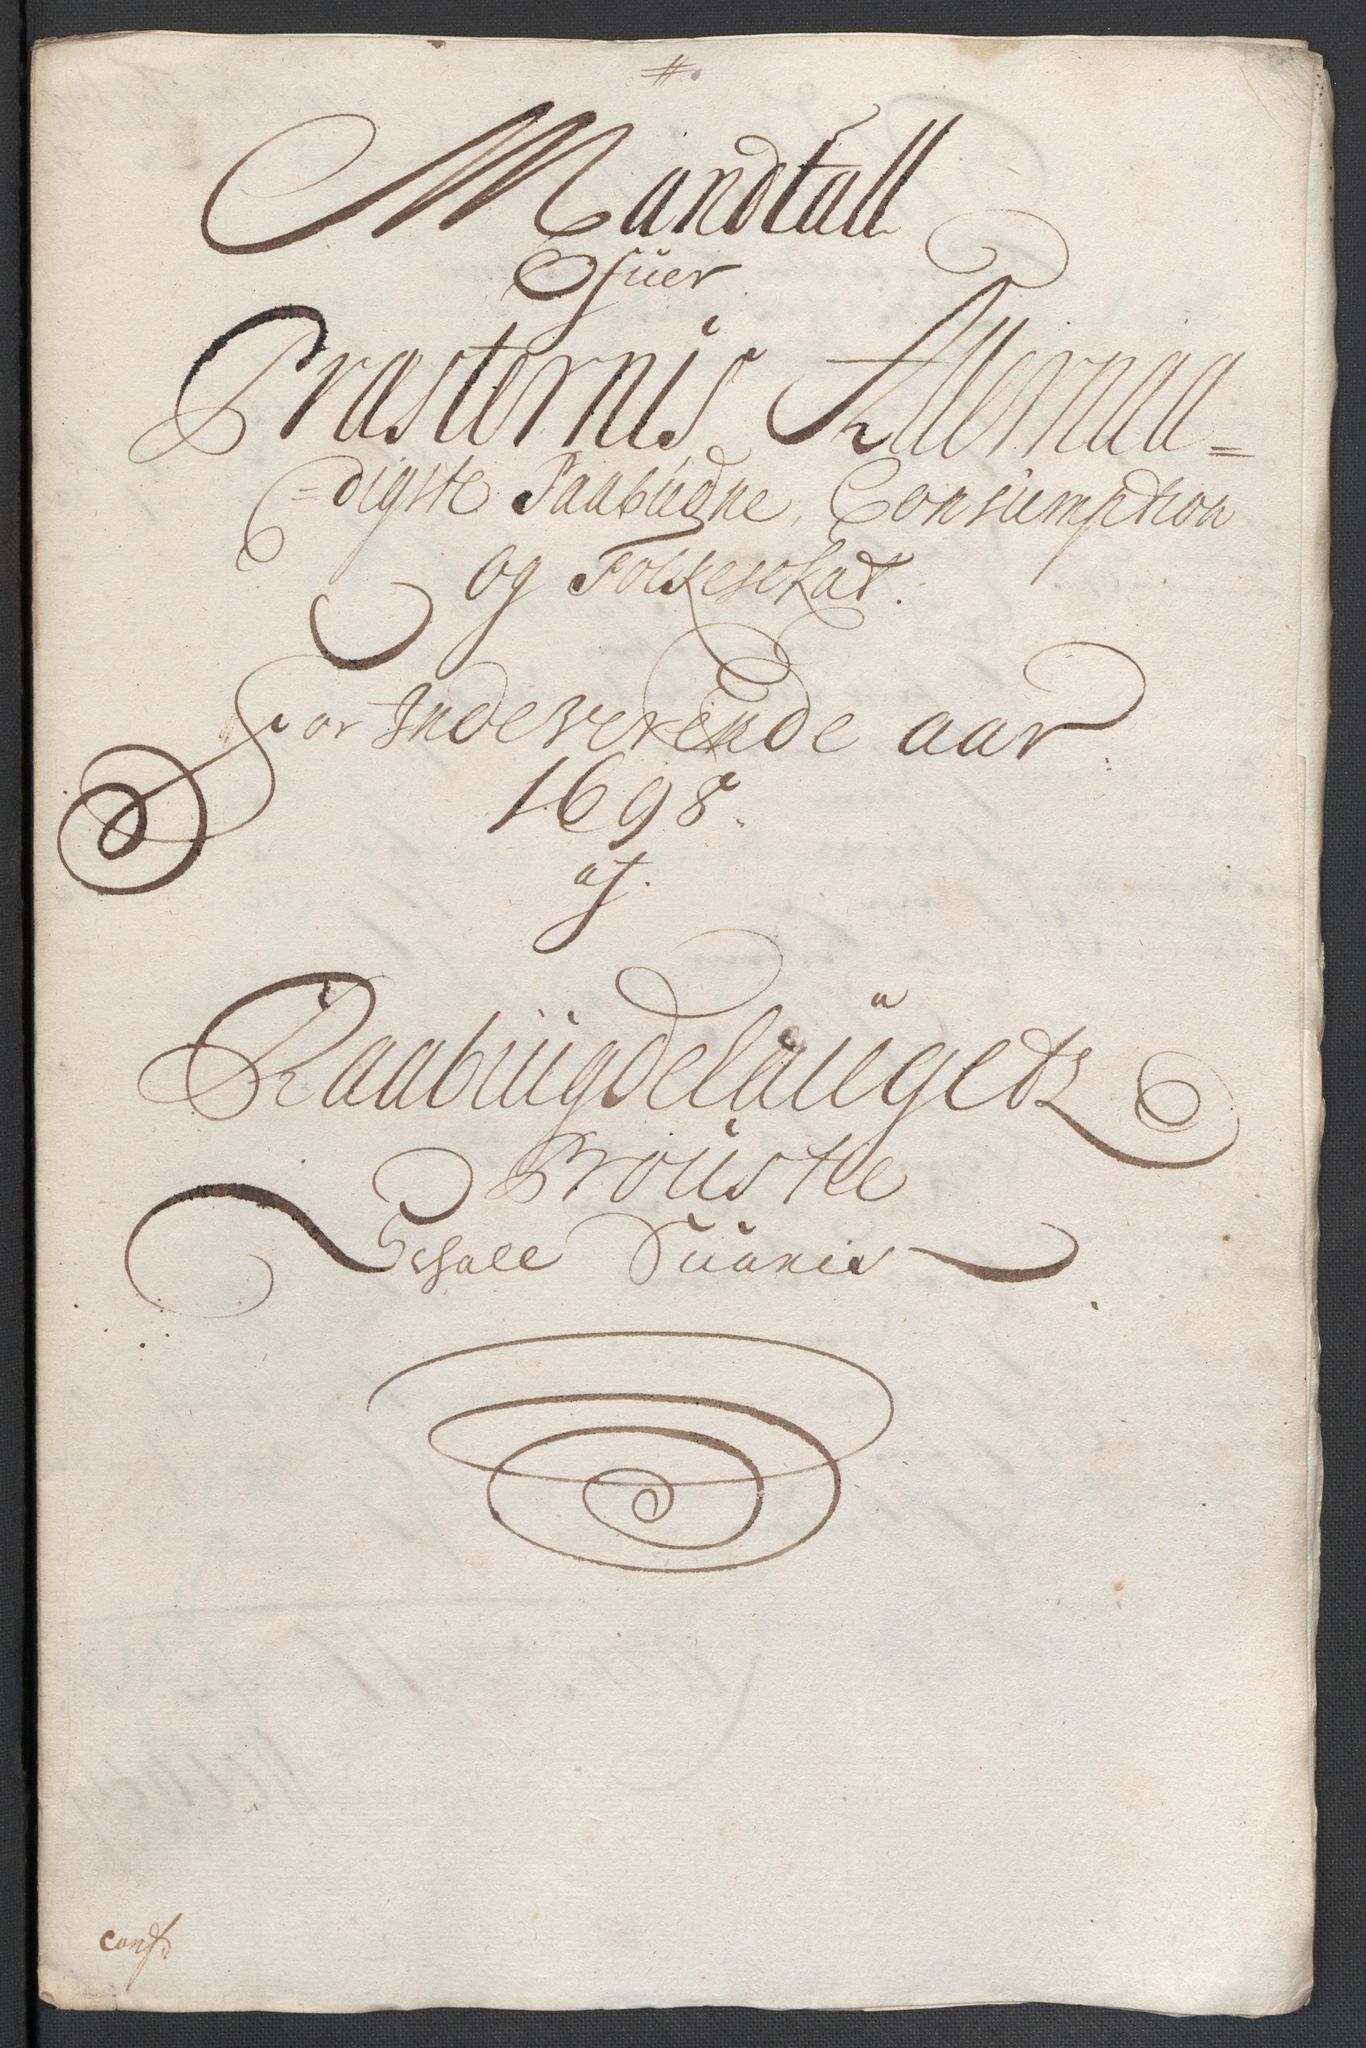 Mandtall
Ofuer
Præsternis Allernaa=
=digste Paabudne, Consumption
og Folkeschat.
For Indeverende aar
1698.
af.
Raabÿgdelaugetz
Proustie